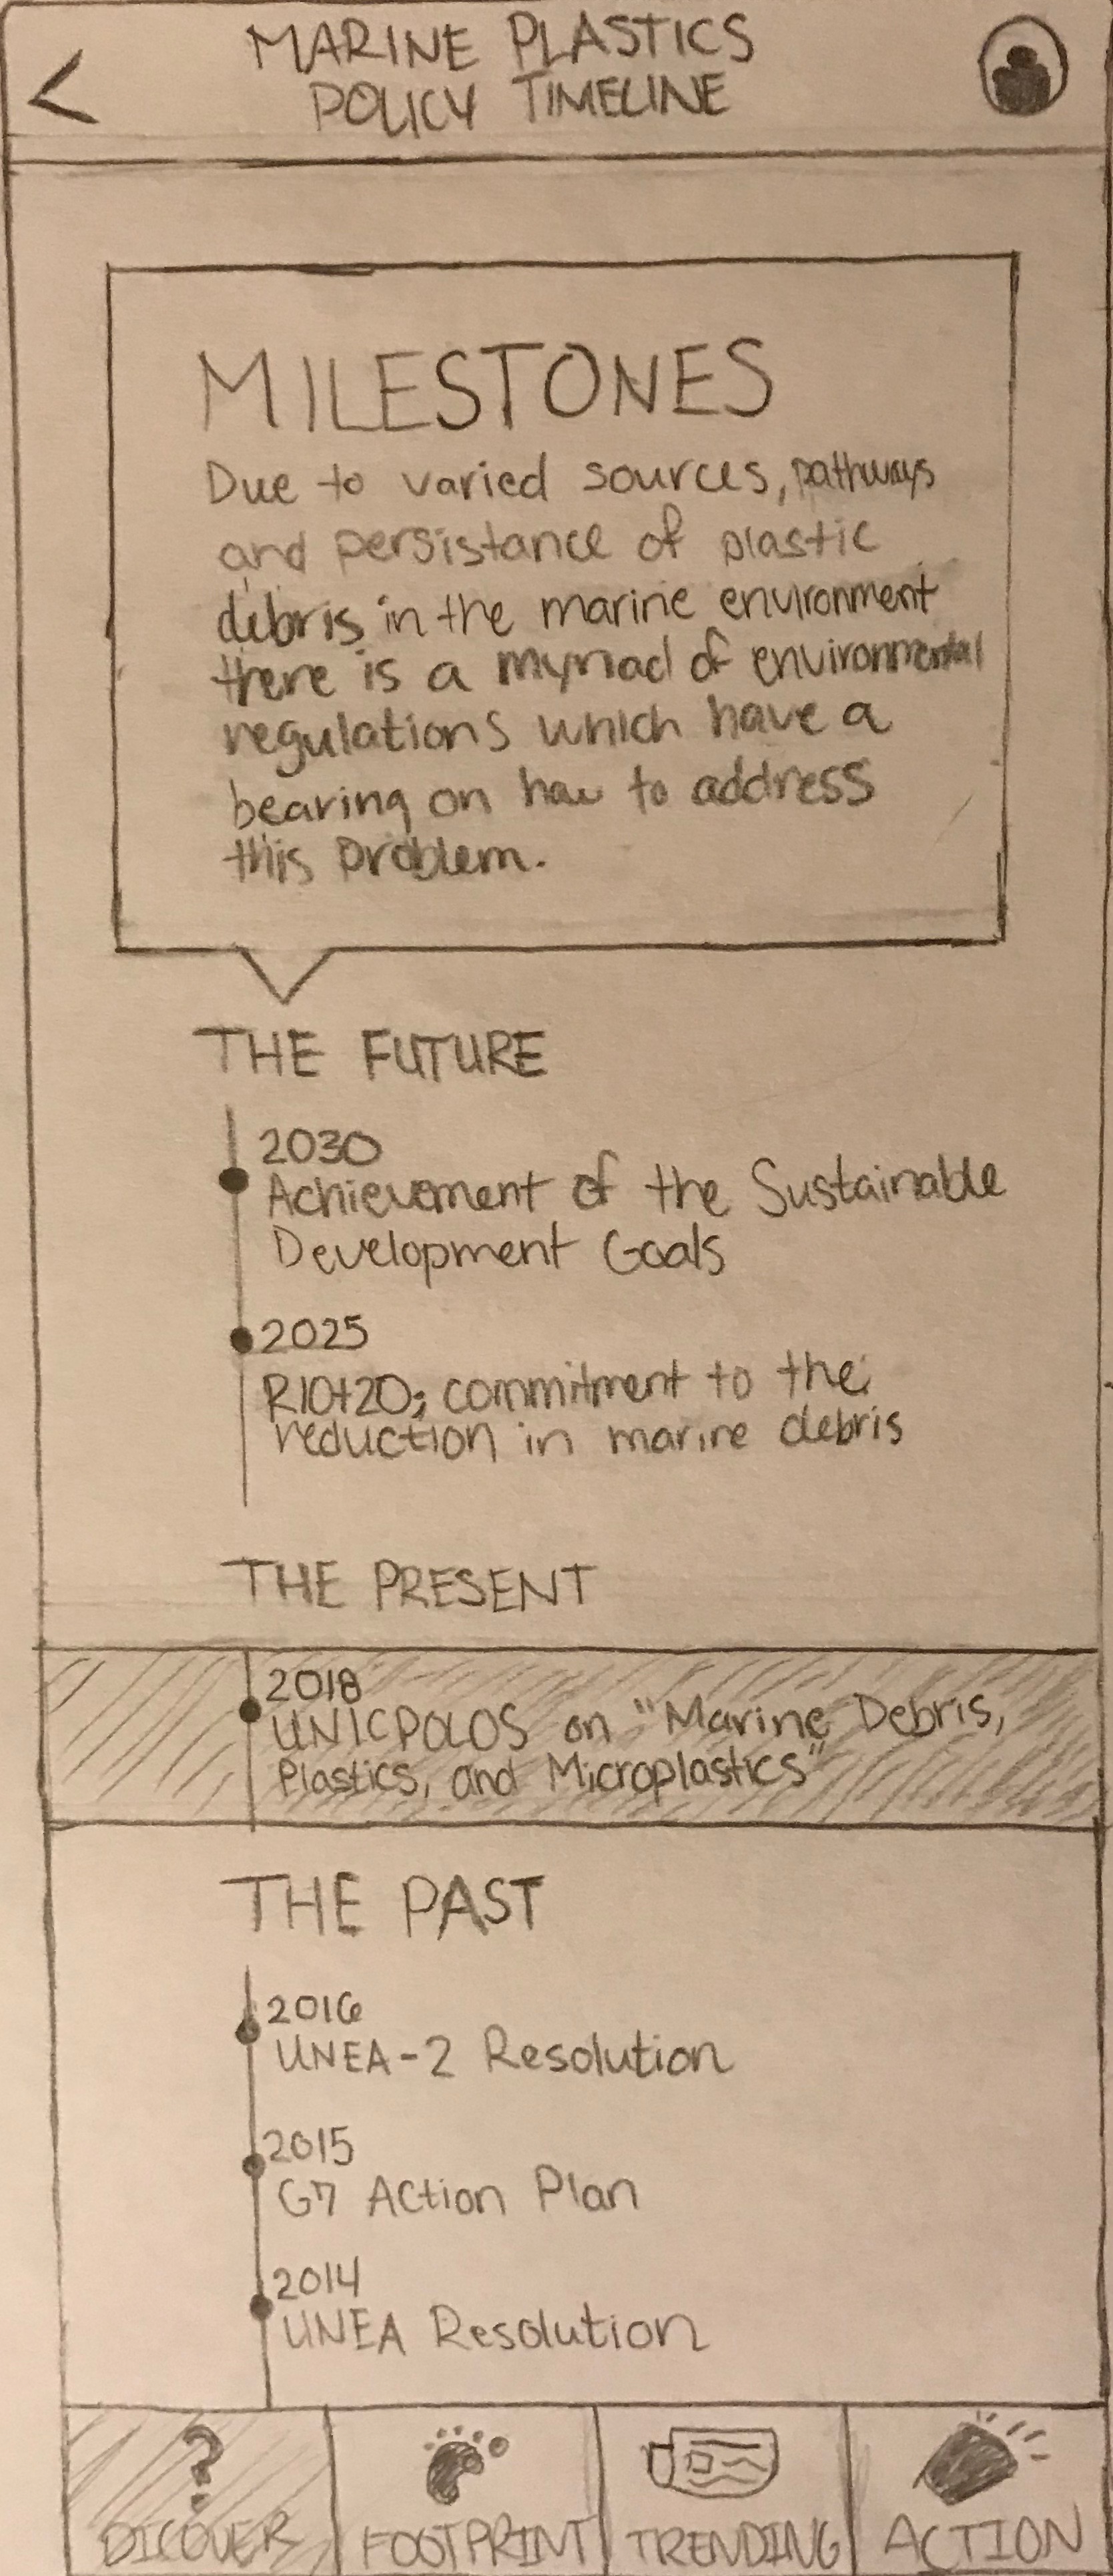 MARINE PLASTICS
POLICY TIMELINE
MILESTONES
Due to varied sources, pathways
and persistance of plastic
debris in the marine environment
there is a myriad of environmental
regulations which have a
bearing on how to address
this problem.
THE FUTURE
2030
Achievement of the Sustainable
Development Goals
2025
RIO+20; commitment to the
reduction in marine debris
THE PRESENT
2018
UNICPOLOS on "Marine Debris,
Plastics, and Microplastics"
THE PAST
2016
UNEA-2 Resolution
2015
G7 Action Plan
2014
UNEA Resolution
DICOVER FOOTPRINT TRENDING ACTION